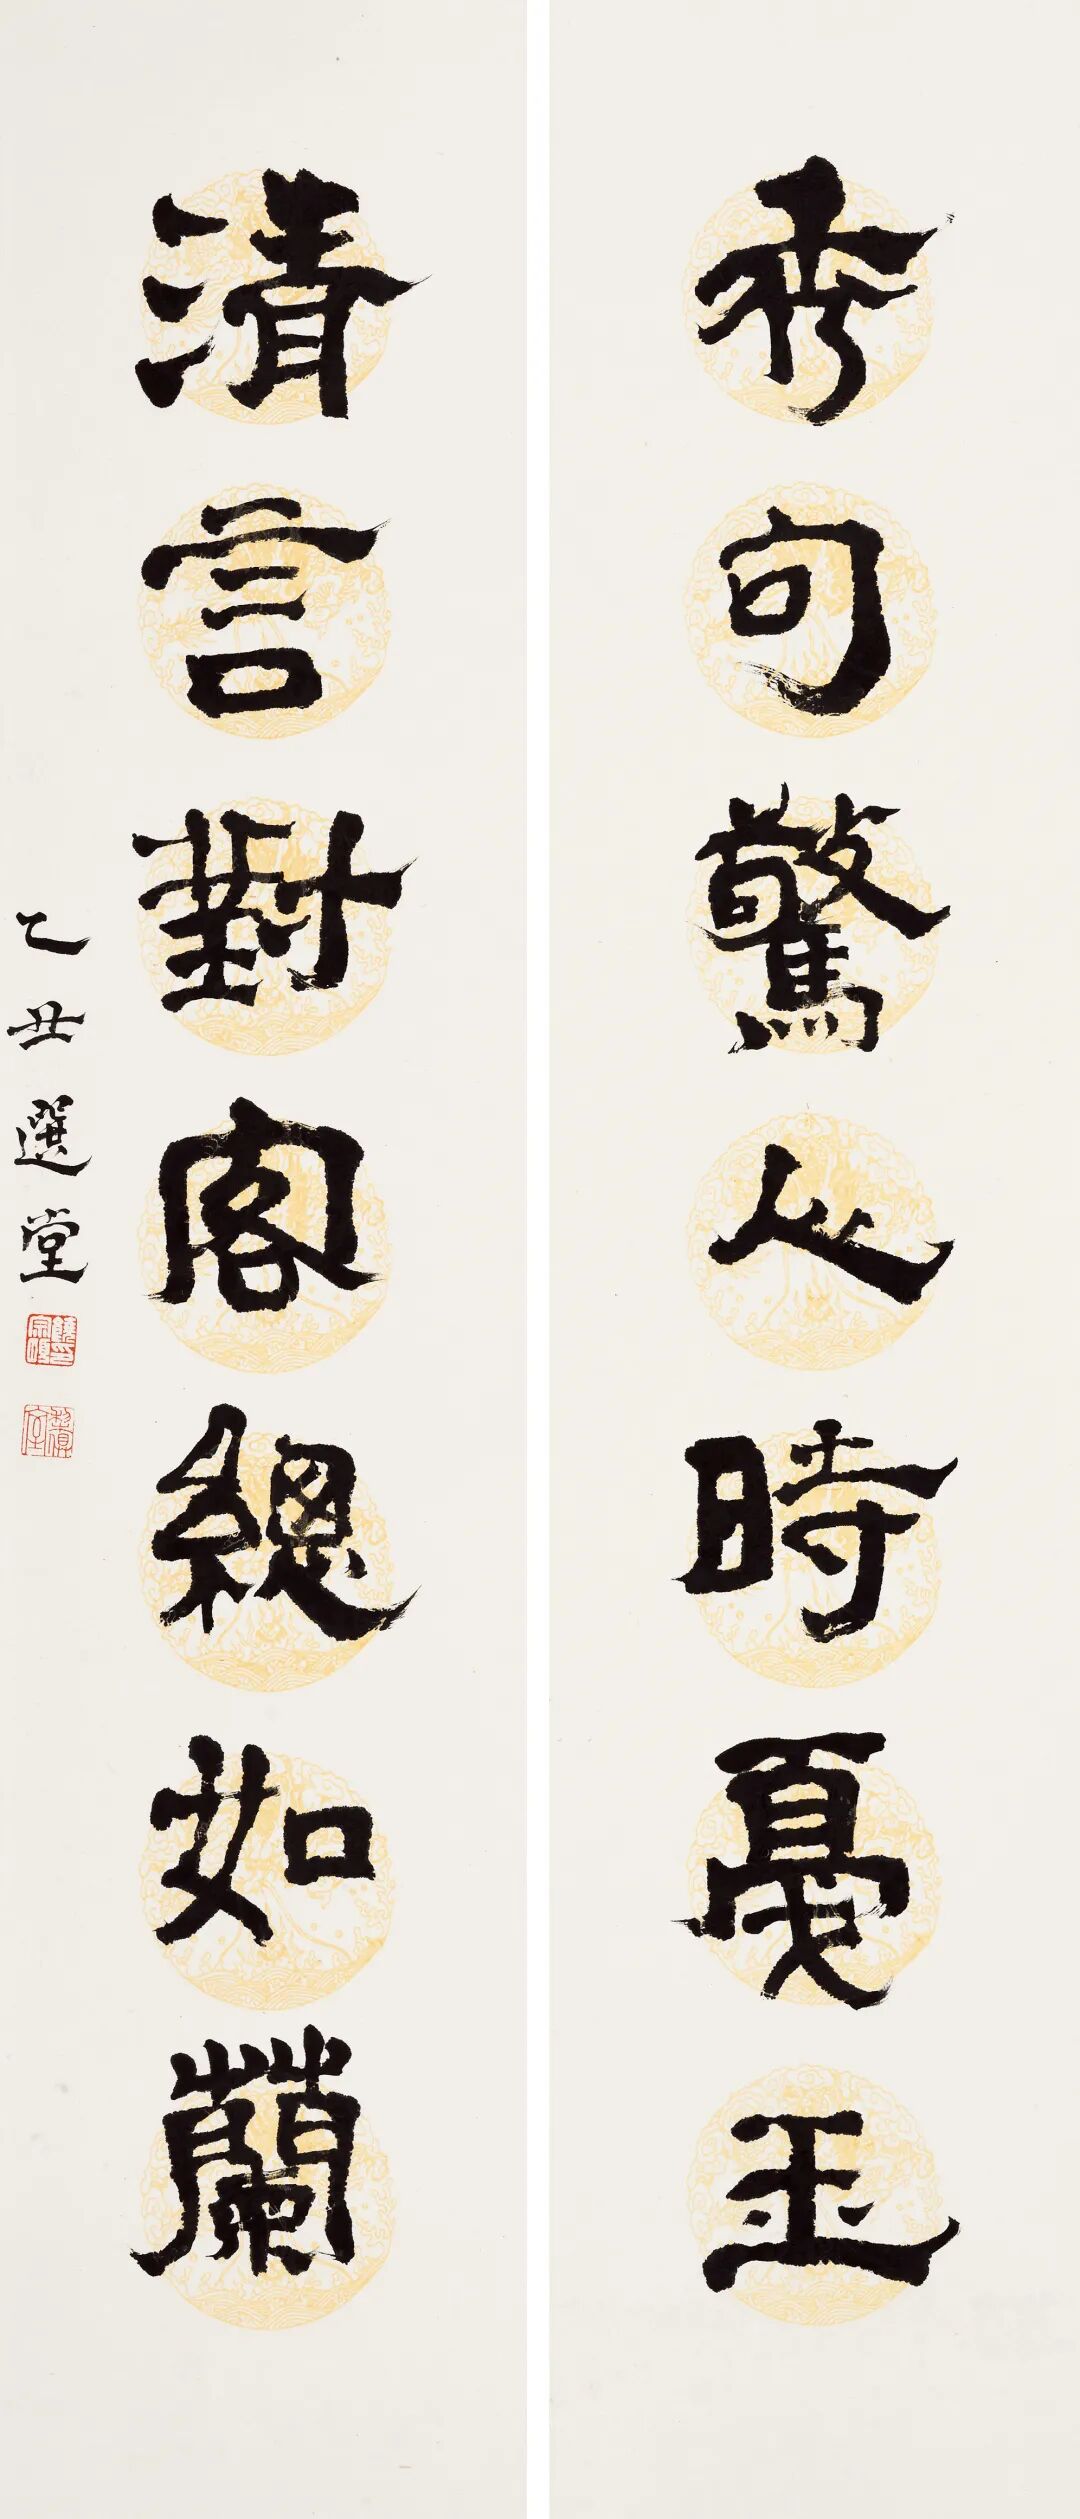 秀句驚人時戛玉
清言對客總如蘭
乙丑選堂
饒宗頤印